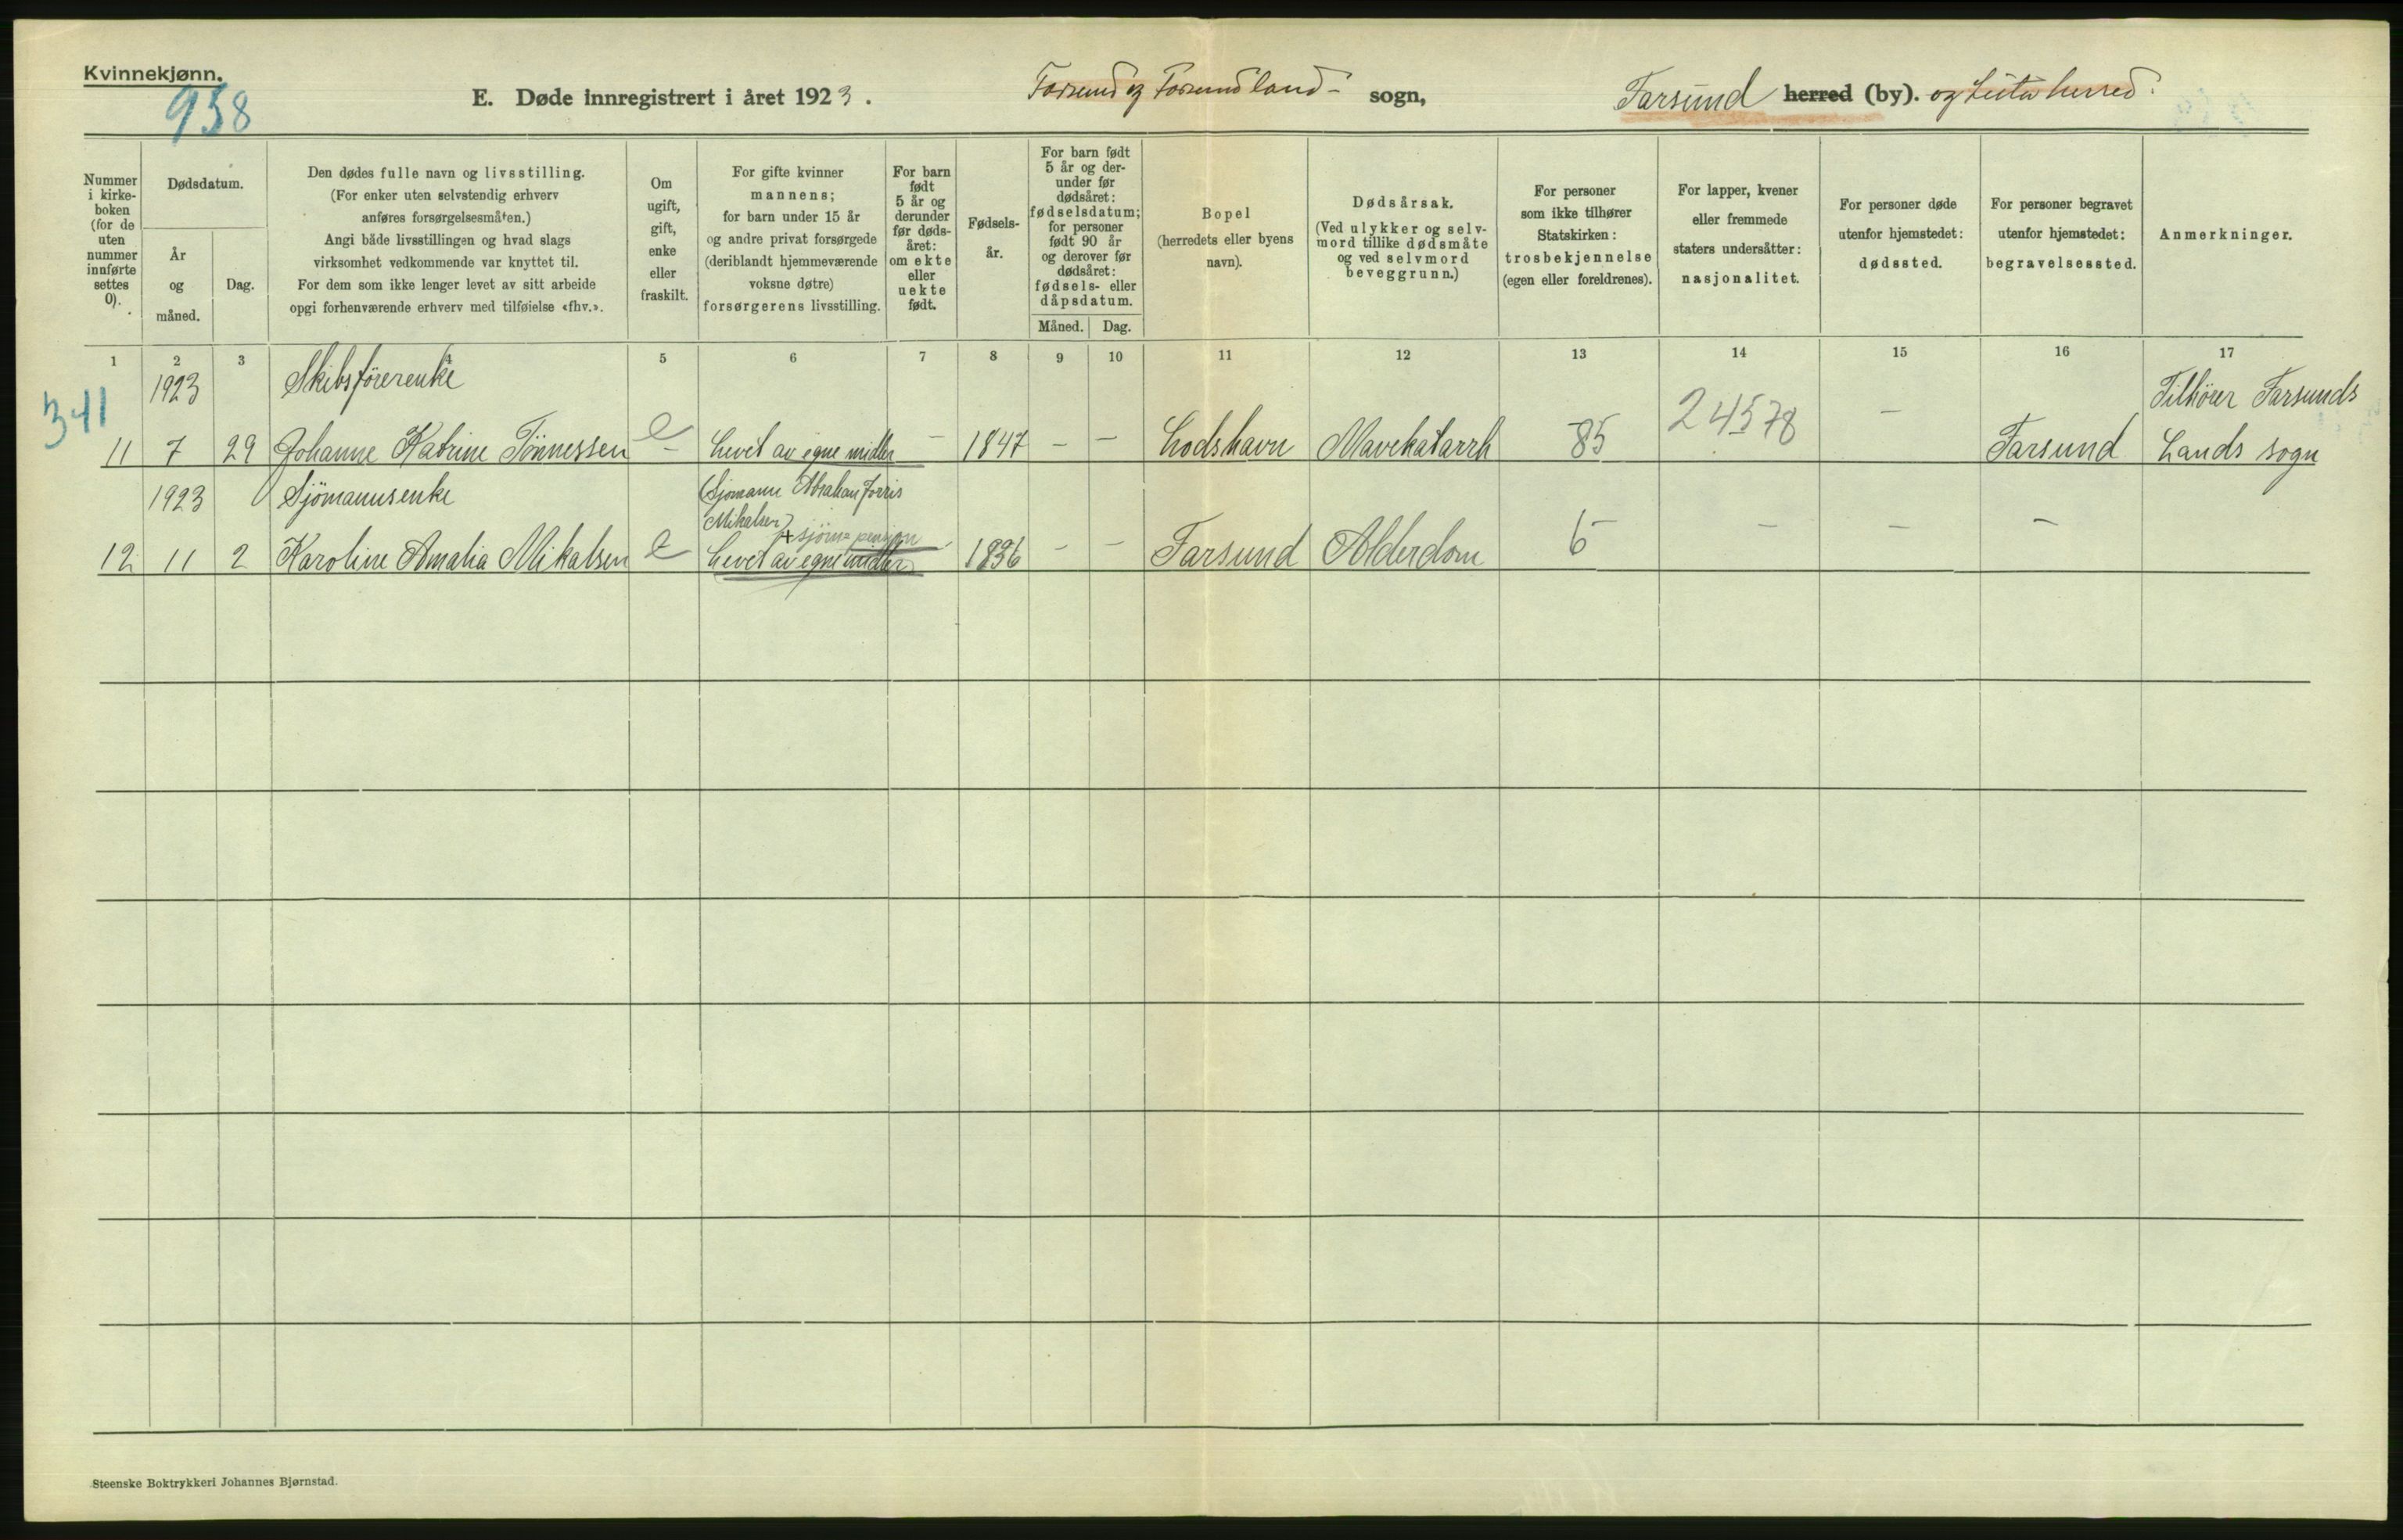 Kvinnekjønn.
958
E. Døde innregistrert i året 1923. Farsund og Farsund land- sogn, Farsund herred (by). og Lista herred.
Nummer i kirke-boken (for de uten nummer innførte settes 0).
Dødsdatum.
År og måned.
Dag.
Den dødes fulle navn og livsstilling.
(For enker uten selvstendig erhverv
anføres forsørgelsesmåten.)
Angi både livsstillingen og hvad slags
virksomhet vedkommende var knyttet til.
For dem som ikke lenger levet av sitt arbeide
opgi forhenværende erhverv med tilføielse «fhv.».
Om
ugift,
gift,
enke
eller
fraskilt.
For gifte kvinner
mannens;
for barn under 15 år
og andre privat forsørgede
(deriblandt hjemmeværende
voksne døtre)
forsørgerens livsstilling.
For barn
født
5 år og
derunder
før døds-
året:
om ekte
eller
uekte
født.
Fødsels-
år.
For barn født
5 år og der-
under før
dødsåret:
fødselsdatum;
for personer
født 90 år
og derover før
dødsåret:
fødsels- eller
dåpsdatum.
Måned. Dag.
Bopel
(herredets eller byens
navn).
Dødsårsak.
(Ved ulykker og selv-
mord tillike dødsmåte
og ved selvmord
beveggrunn.)
For personer
som ikke tilhører
Statskirken:
trosbekjennelse
(egen eller foreldrenes).
For lapper, kvener
eller fremmede
staters undersåtter:
nasjonalitet.
For personer døde
utenfor hjemstedet:
dødssted.
For personer begravet
utenfor hjemstedet:
begravelsessted.
Anmerkninger.
1 2 3 4 5 6 7 8 9 10 11 12 13 14 15 16 17
341
1923 Skibsförerenke Tilhörer Farsunds
11 7 29 Johanne Katrine Tönnessen e - Levet av egne midler - 1847 - - Lodshavn Mavekatarrh 85 24578 - Farsund Lands sogn
1923 Sjömannsenke (Sjömann Abraham Jorris
Mikalsen)
+ sjöm= pensjon
12 11 2 Karoline Amalia Mikalsen e Levet av egne midler - 1836 - - Farsund Alderdom 6 - - -
Steenske Boktrykkeri Johannes Bjørnstad.